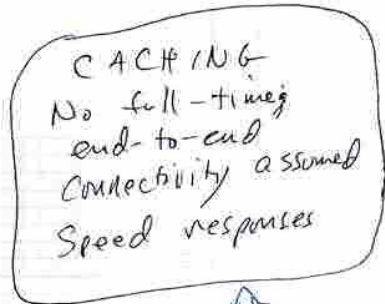 CACHING
No full-time
end-to-end
connectivity assumed
Speed responses